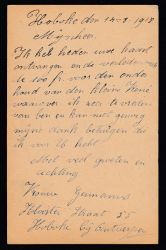 Hoboke den 14-8 1918
Mijnheer
Ik heb heden uwe kaart
ontvangen en de
100 fr. voor den onder
houd van den kleinen René
waarover ik zeer tevreden
van ben en kan niet genoeg
mijne dank betuigen die
ik voor U heb
Met veel groeten en
achting
Vrouw
Straat 55
Hoboke bij Antwerpen